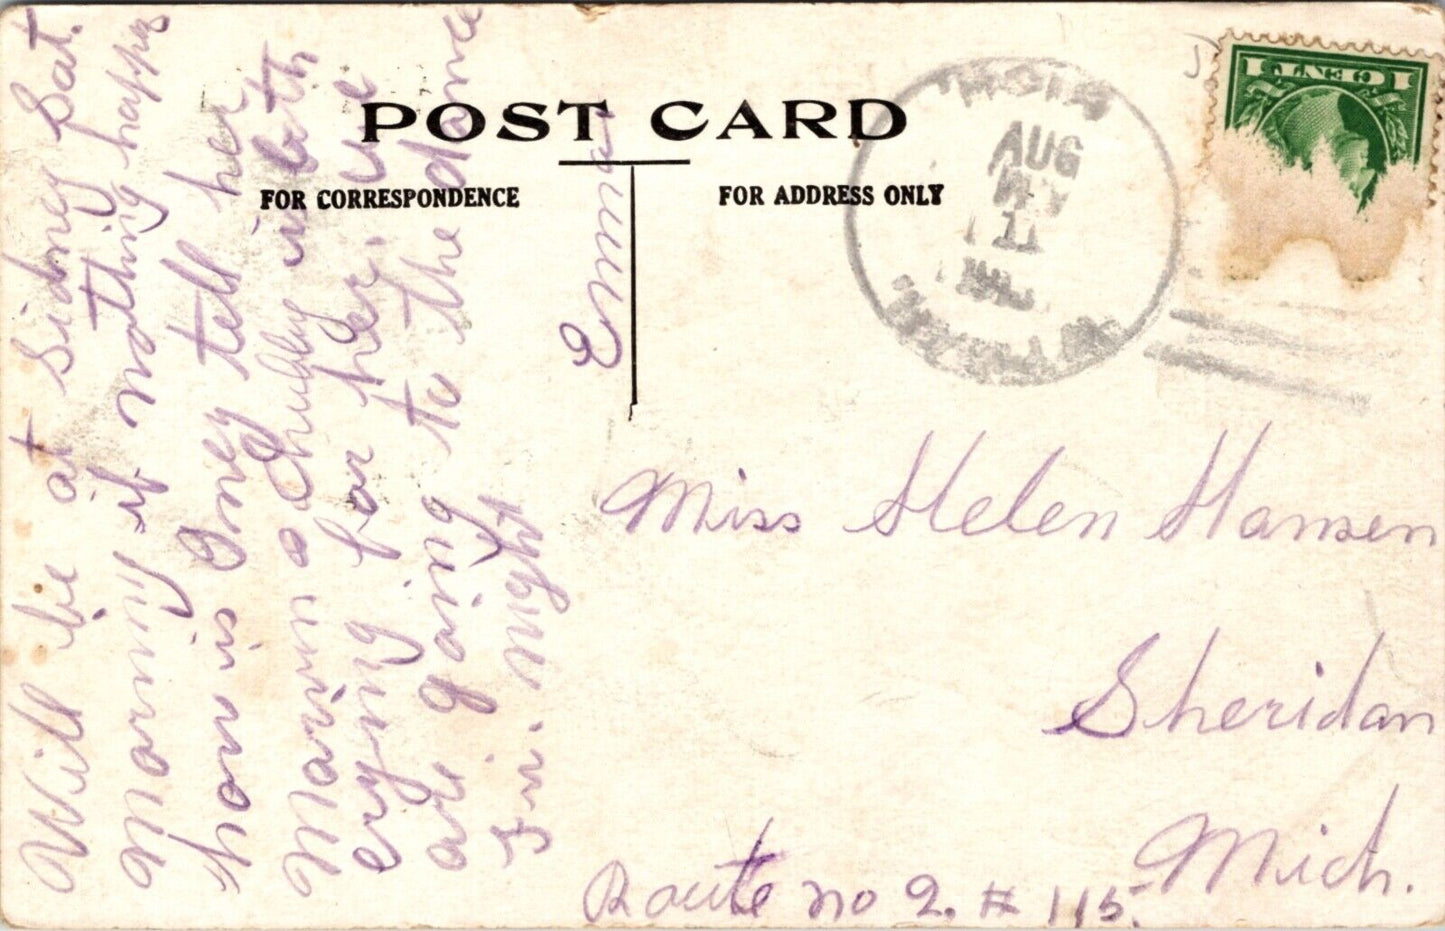 POST CARD
FOR CORRESPONDENCE
FOR ADDRESS ONLY
Will be at Sidney Sat.
morning if nothing happes
how is Iney tell her
Marvin & Chubby is both
crying for her. We
are going to the dance
Fri. Night
Emma
AUG
11
1 CENT 1
Miss Helen Hansen
Sheridan
Mich.
Route no 2. # 115.